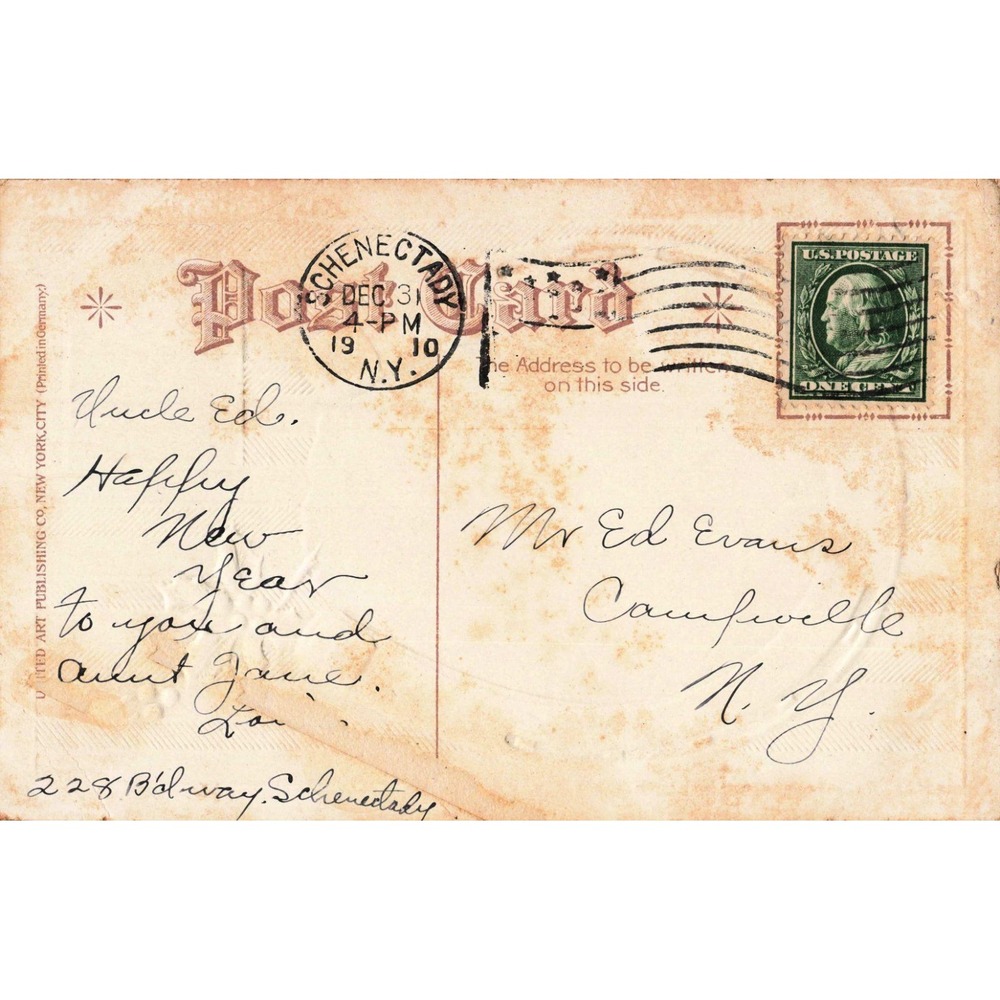 Post Card
SCHENECTADY
DEC 31
4-PM
19 10
N.Y.
U.S. POSTAGE
ONE CENT
The Address to be written
on this side.
UNITED ART PUBLISHING CO, NEW YORK, CITY (Printed in Germany.)
Uncle Ed.
Happy
New
Year
to you and
aunt Jane.
228 B'dway. Schenectady
Mr Ed Evans
Campville
N. Y.